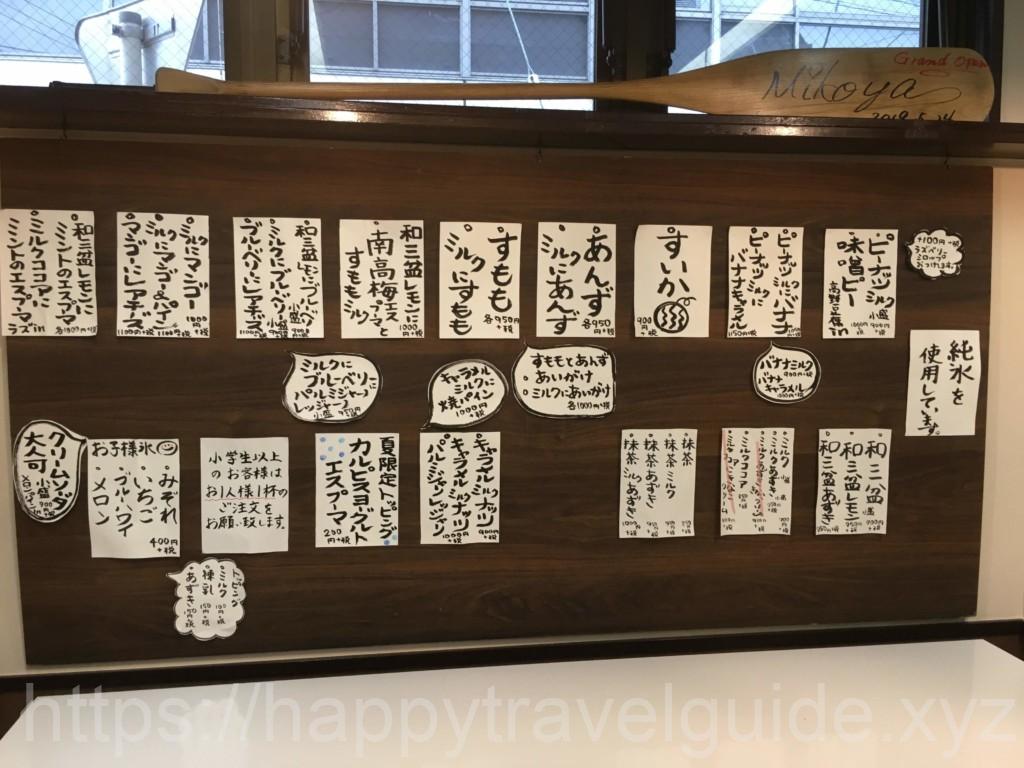 Grand Open
Mikoya
2019.5.14
+100円+税
ラズベリー
シロップ
おつけれます。
ピーナッツミルク
小盛
900+税
味噌ピー
高野豆腐in
1000+税
ピーナッツミルクバナナ
ピーナッツミルクに
バナナキャラメル
1150円+税
すいか
900円
+税
あんず
ミルクにあんず
各950
+税
すもも
ミルクにすもも
各950円
+税
和三盆レモンに
南高梅エスプーマと
すももミルク
1000円
+税
和三盆レモンにブルーベリー
ミルクにブルーベリー
小盛
ブルーベリーにレアチーズ
1100円+税
ミルクにマンゴー
1000
+税
ミルクにマンゴー&パイン
1100+税
マンゴーにレアチーズ
1100円+税
和三盆レモンに
ミントのエスプーマ
ミルクココアに
ミントのエスプーマ
ラズin
各1000円+税
純氷を
使用しています。
バナナミルク
900円+税
バナナ
キャラメル
すももとあんず
あいがけ
ミルクにあいがけ
各1000円+税
キャラメル
ミルクに
焼パイン
1000円
+税
ミルクに
ブルーベリー
パルミジャーノ
レッジャーノ
小盛 950円
和三盆
和三盆レモン
和三盆あずき
ミルク
ミルクあずき
ミルクココア
抹茶
抹茶ミルク
抹茶あずき
抹茶ミルクあずき
キャラメルミルクナッツ
900円
+税
キャラメルミルクナッツ
パルミジャーノレッジャーノ
1000円
+税
夏限定トッピング
カルピスヨーグルト
エスプーマ
200円
+税
小学生以上
のお客様は
お1人様1杯の
ご注文を
お願い致します。
お子様氷
みぞれ
いちご
ブルーハワイ
メロン
400円
+税
クリームソーダ
小盛 900
大人可
トッピング
ミルク 100円+税
練乳 150円+税
あずき 150円+税
https://happytravelguide.xyz